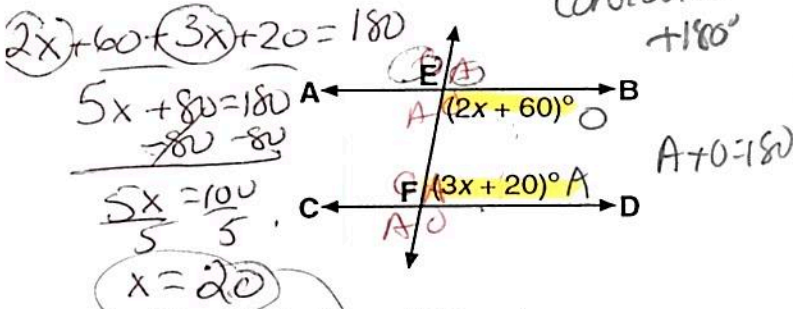 2x+60+3x+20=180
+180°
5x+80=180
-80 -80
5x = 100
5 5
x=20
E A
A B
A (2x + 60)° O
A+O=180
F (3x + 20)° A
C D
A O